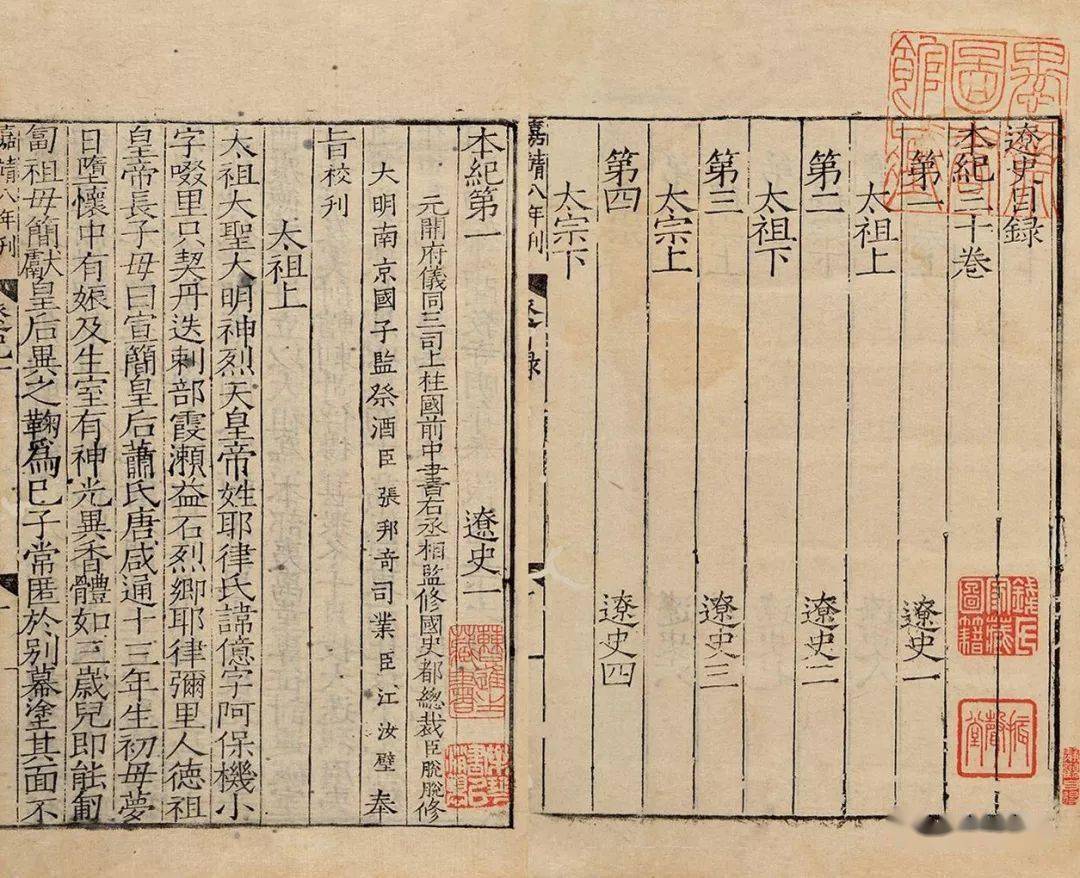 遼史目録
本紀三十卷
第一 遼史一
太祖上
第二 遼史二
太祖下
第三 遼史三
太宗上
第四 遼史四
太宗下
嘉靖八年刊
本紀第一 遼史一
元開府儀同三司上柱國前中書右丞相監修國史都總裁臣脫脫修
大明南京國子監祭酒臣張邦奇司業臣江汝璧奉
旨校刊
太祖上
太祖大聖大明神烈天皇帝姓耶律氏諱億字阿保機小
字啜里只契丹迭剌部霞瀬益石烈鄉耶律彌里人德祖
皇帝長子母曰宣簡皇后蕭氏唐咸通十三年生初母夢
日墮懷中有娠及生室有神光異香體如三歲兒即能匍
匐祖母簡獻皇后異之鞠爲己子常匿於别幕塗其面不
嘉靖八年刊
錢氏
藏
圖籍
振聲堂
藏書